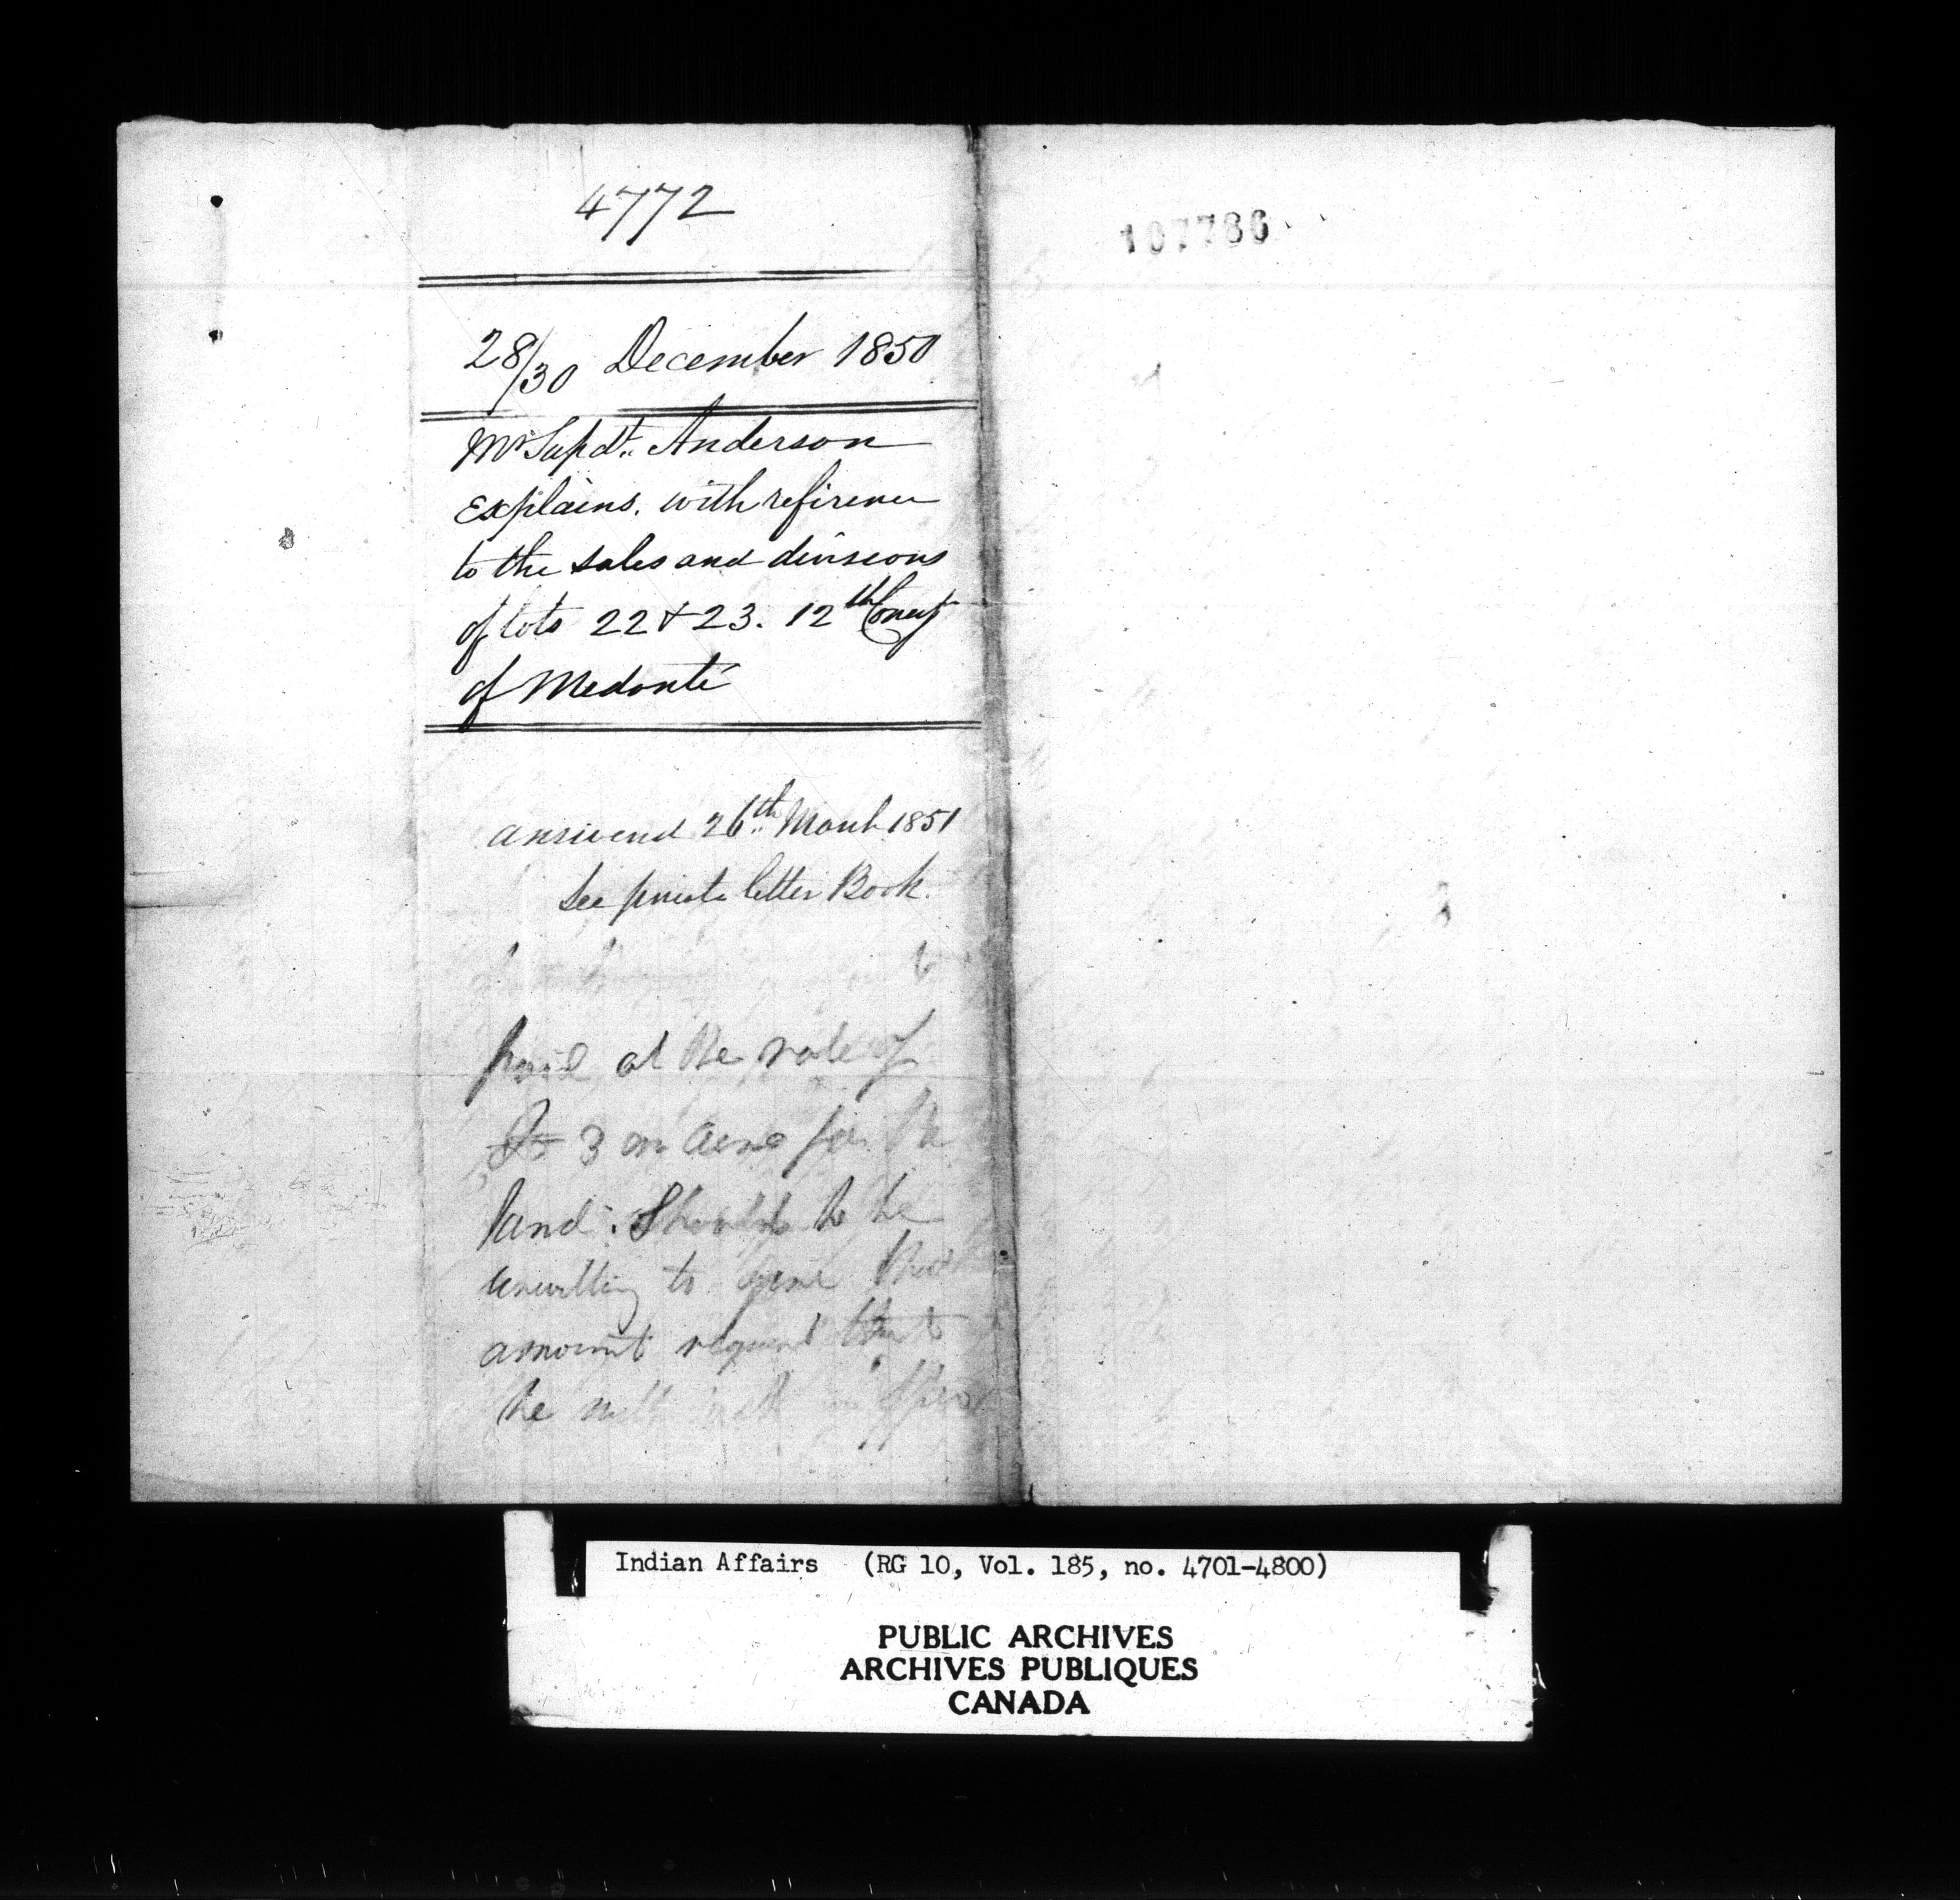 4772
28/30 December 1850
Mr Supdt. Anderson
Explains. with refirence
to the sales and divisions
of lots 22 & 23. 12th Concs
of Medonté
answered 26th March 1851
See private letter Book.
paid at the rate of
3 an acre for the
land. Should he be
unwilling to give this
amount request that
he will
107786
Indian Affairs (RG 10, Vol. 185, no. 4701-4800)
PUBLIC ARCHIVES
ARCHIVES PUBLIQUES
CANADA